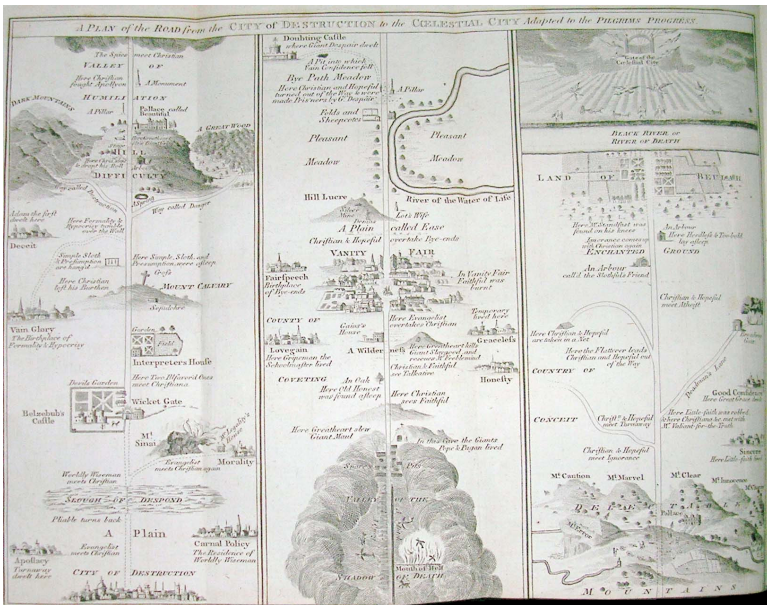 A PLAN of the ROAD from the CITY of DESTRUCTION to the CŒLESTIAL CITY Adapted to the PILGRIMS PROGRESS.
VALLEY OF
Here Christian
fought Apollyon
A Monument
HUMILIATION
DARK MOUNTAINS
A Pillar
Pallace called
Beautiful
A GREAT WOOD
HILL
DIFFICULTY
Way called Danger
Adam the first
dwelt here
Deceit
Here Formality &
Hypocrisy tumble
over the Wall
Simple Sloth
& Presumption
are hang'd
Here Simple, Sloth, and
Presumption, were asleep
Cross
MOUNT CALVARY
Here Christian
left his Burthen
Sepulchre
Vain Glory
The Birthplace of
Formality & Hypocrisy
Garden
Field
Interpreter's House
Here Two Ill favored Ones
meet Christiana
Devils Garden
Belzebub's
Castle
Wicket Gate
Mt.
Sinai
Mr. Legality's
House
Morality
Evangelist
meets Christian again
Worldly Wiseman
meets Christian
SLOUGH OF DESPOND
Pliable turns back
A Plain
Evangelist
meets Christian
Carnal Policy
The Residence of
Worldly Wiseman
Apostacy
Turnaway
dwelt here
CITY OF DESTRUCTION
Doubting Castle
where Giant Despair dwelt
A Pit into which
Vain Confidence fell
Bye Path Meadow
Here Christian and Hopeful
turned out of the Way & were
made Prisners by Gt. Despair
A Pillar
Folds and
Sheepcotes
Pleasant
Meadow
Pleasant
Meadow
Hill Lucre
River of the Water of Life
Silver
Mine
Demas
Lot's Wife
A Plain called Ease
Christian & Hopeful overtake Bye-ends
VANITY FAIR
Fairspeech
Birthplace
of Bye-ends
In Vanity Fair
Faithful was
burnt
COUNTY OF
Gaius's
House
Here Evangelist
overtakes Christian
Temporary
lived here
Graceless
Lovegain
Here Gripeman the
Schoolmaster lived
A Wilderness
Here Greatheart kills
Giant Slaygood, and
rescues Mr. Feeblemind
Christian & Faithful
see Talkative
Honesty
COVETING
An Oak
Here Old Honest
was found asleep
Here Christian
sees Faithful
Here Greatheart slew
Giant Maul
In this Cave the Giants
Pope & Pagan lived
VALLEY OF THE
Mouth of Hell
SHADOW OF DEATH
Gate of the
Cœlestial City
BLACK RIVER or
RIVER OF DEATH
LAND OF BEULAH
Here Mr. Standfast was
found on his knees
Ignorance comes up
with Christian again
An Arbour
Here Heedless & Too-bold
lay asleep
ENCHANTED GROUND
An Arbour
call'd the Slothfuls Friend
Christian & Hopeful
meet Atheist
Here Christian & Hopeful
are taken in a Net
Here the Flatterer leads
Christian and Hopeful out
of the Way
COUNTRY OF
Deadman's Lane
Good Confidence
Here Great Grace dwelt
Here Little-faith was robbed
& where Christiana &c. met with
Mr. Valiant-for-the-Truth
CONCEIT
Christn. & Hopeful
meet Turnaway
Sincere
Here Little-faith lived
Christian & Hopeful
meet Ignorance
Mt. Caution
Mt. Marvel
Mt. Clear
Mt. Innocence
DELECTABLE
Pallace
Mt. Error
MOUNTAINS